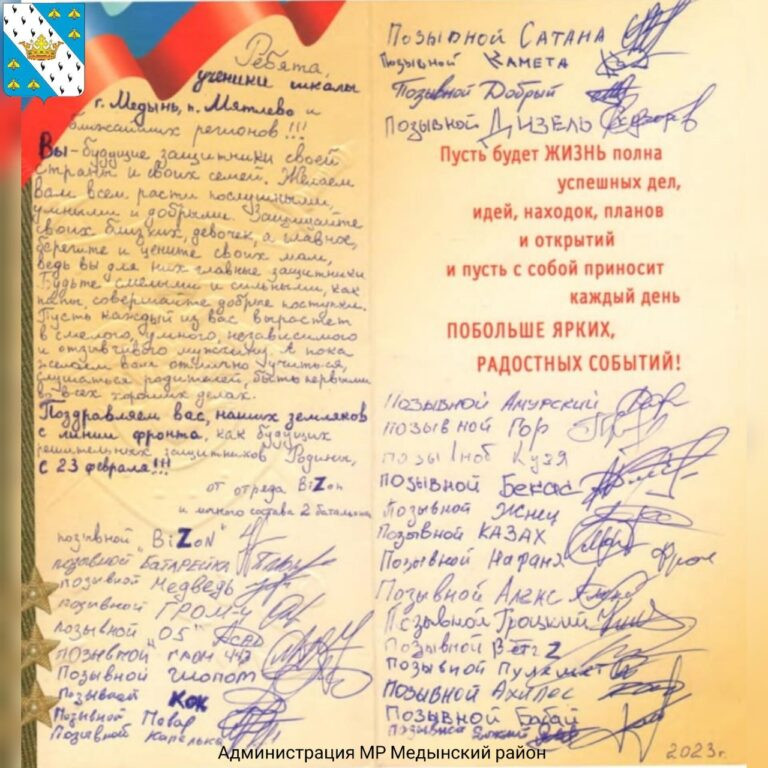 Ребята,
ученики школы
г. Медынь, п. Мятлево и
ближайших регионов!!!
Вы - будущие защитники своей
страны и своих семей. Желаем
вам всем расти послушными,
умными и добрыми. Защищайте
своих близких, девочек, а главное,
берегите и цените своих мам,
ведь вы для них главные защитники
Будьте смелыми и сильными, как
папы, совершайте добрые поступки.
Пусть каждый из вас вырастет
в смелого, умного, независимого
и отзывчивого мужчину. А пока
желаем вам отлично учиться,
слушаться родителей, быть первыми
во всех хороших делах.
Поздравляем вас, наших земляков
с линии фронта, как будущих
решительных защитников Родины,
с 23 февраля!!!
от отряда BiZon
и личного состава 2 батальона
позывной "BiZoN"
позывной "БАТАРЕЙКА"
позывной Медведь
позывной ГРОМ-4
позывной "05"
позывной "ГРОМ 447"
Позывной
Позывной Кок
Позывной Повар
Позывной Капелька
Позывной САТАНА
Позывной КАМЕТА
Позывной Добрый
позывной ДИЗЕЛЬ
Пусть будет ЖИЗНЬ полна
успешных дел,
идей, находок, планов
и открытий
и пусть с собой приносит
каждый день
ПОБОЛЬШЕ ЯРКИХ,
РАДОСТНЫХ СОБЫТИЙ!
Позывной Амурский
позывной Гор
позывной Кузя
позывной Бекас
Позывной Жнец
Позывной КАЗАХ
Позывной Нафаня
Позывной Алекс
Позывной Троцкий
Позывной
Позывной Пулемет
Позывной Ахилес
Позывной Бабай
Позывной
2023г.
Администрация МР Медынский район